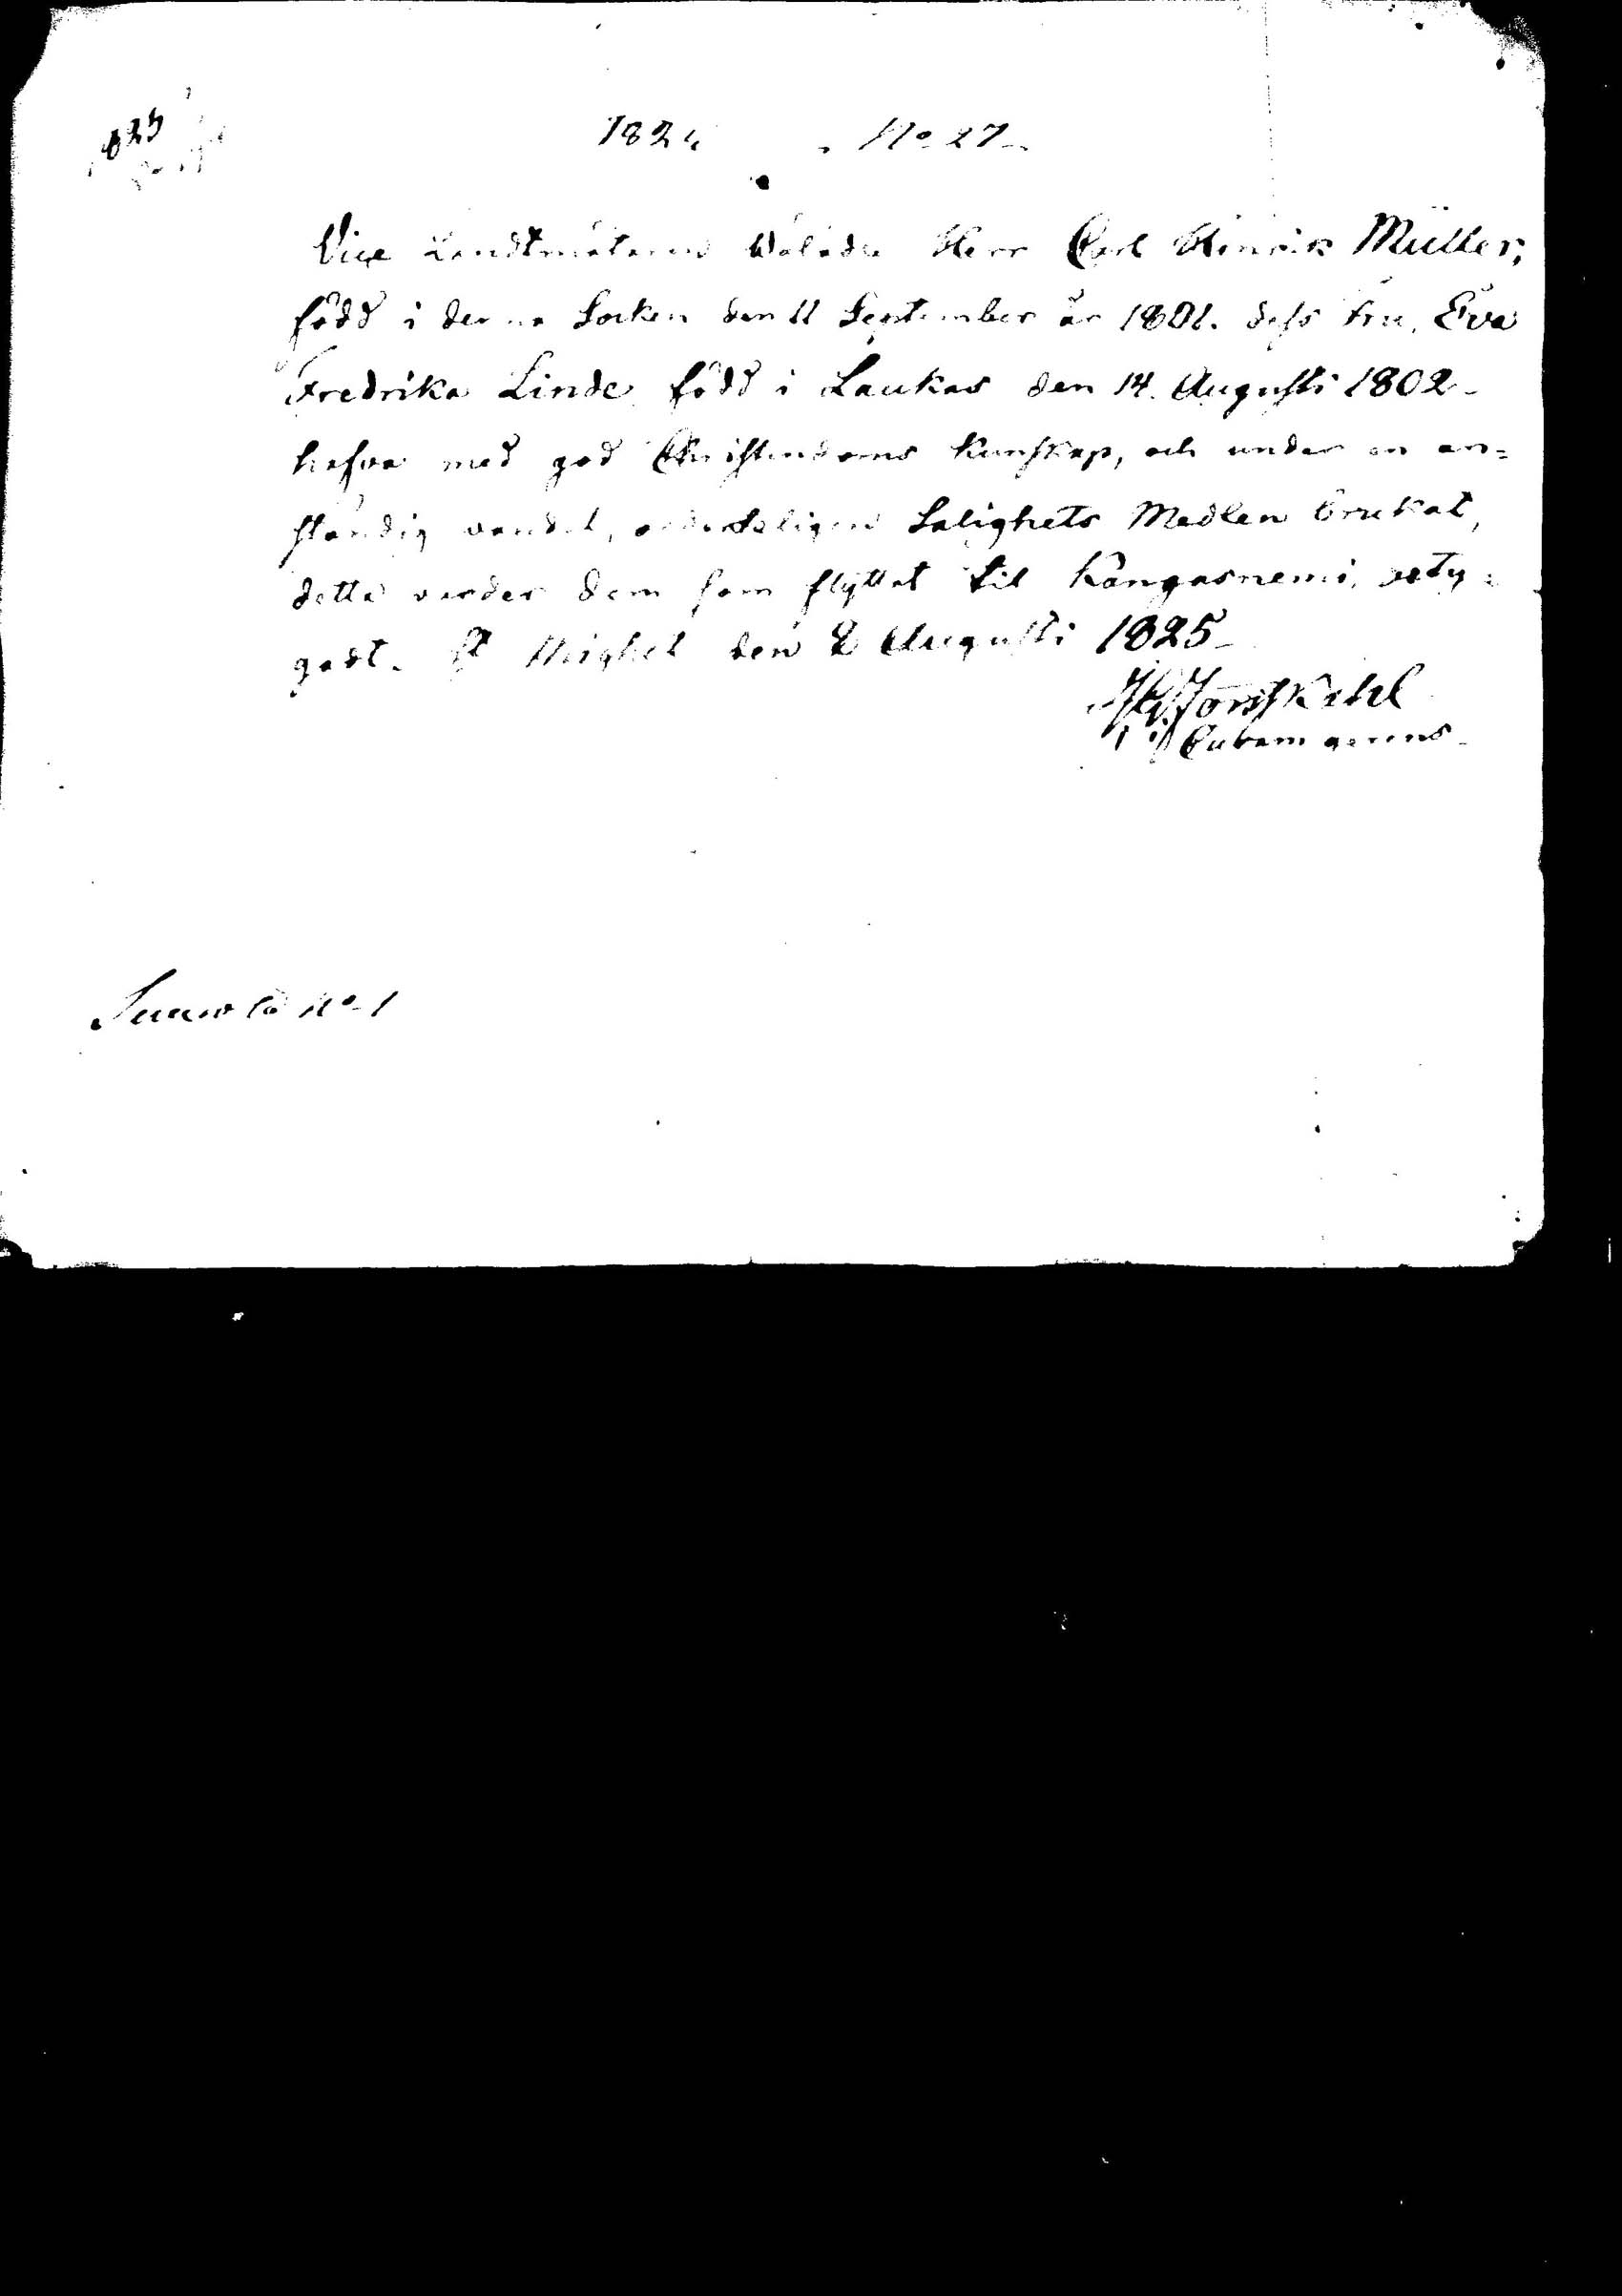 1825
1824 No 27
Vice Landtmätaren Wälade Herr Carl Hinrik Müller,
född i denna Socken den 11 September år 1801. dess Fru, Eva
Fredrika Linde född i Laukas den 14. Augusti 1802
hafva med god Christendoms kunskap, och under en an=
ständig vandel, ordenteligen Salighets Medlen brukat,
detta varder dem som flyttat til Kangasnemi, bety=
gadt. St Michel den 2 Augusti 1825
Forsskåhl